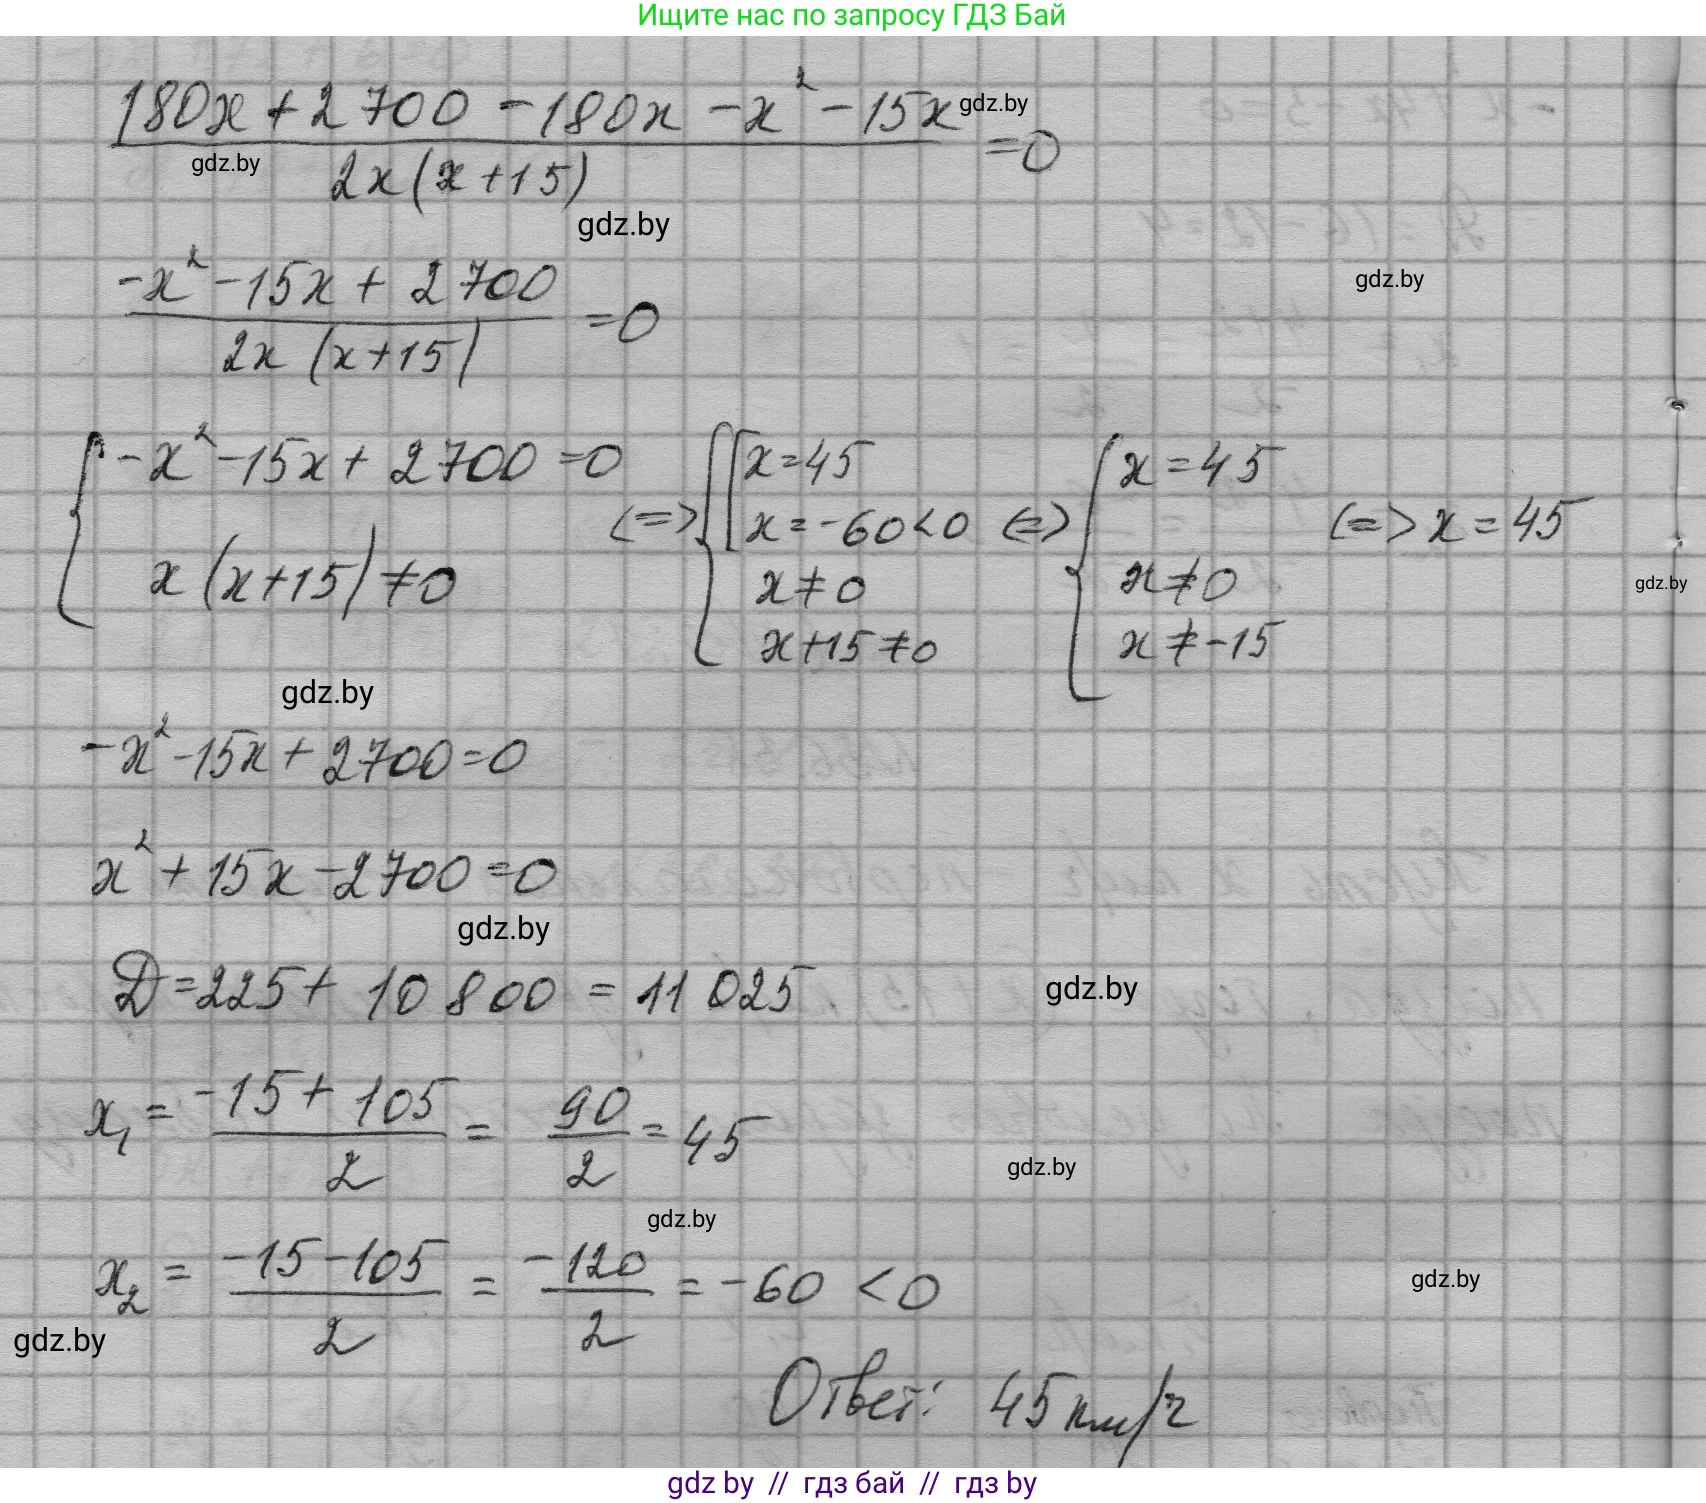 Ищите нас по запросу ГДЗ Бай
180x + 2700 - 180x - x² - 15x gdz.by
= 0
gdz.by 2x(x+15)
gdz.by
-x² - 15x + 2700
= 0
2x(x+15)
gdz.by
{ -x² - 15x + 2700 = 0 (=> { [ x = 45 { x = 45
x = -60 < 0 (=> (=> x = 45
x(x+15) ≠ 0 x ≠ 0 x ≠ 0 gdz.by
x + 15 ≠ 0 x ≠ -15
gdz.by
-x² - 15x + 2700 = 0
x² + 15x - 2700 = 0
gdz.by
D = 225 + 10 800 = 11 025 gdz.by
x₁ = (-15 + 105)/2 = 90/2 = 45
gdz.by
gdz.by
x₂ = (-15 - 105)/2 = -120/2 = -60 < 0 gdz.by
gdz.by
Ответ: 45 км/ч
gdz by // гдз бай // гдз by